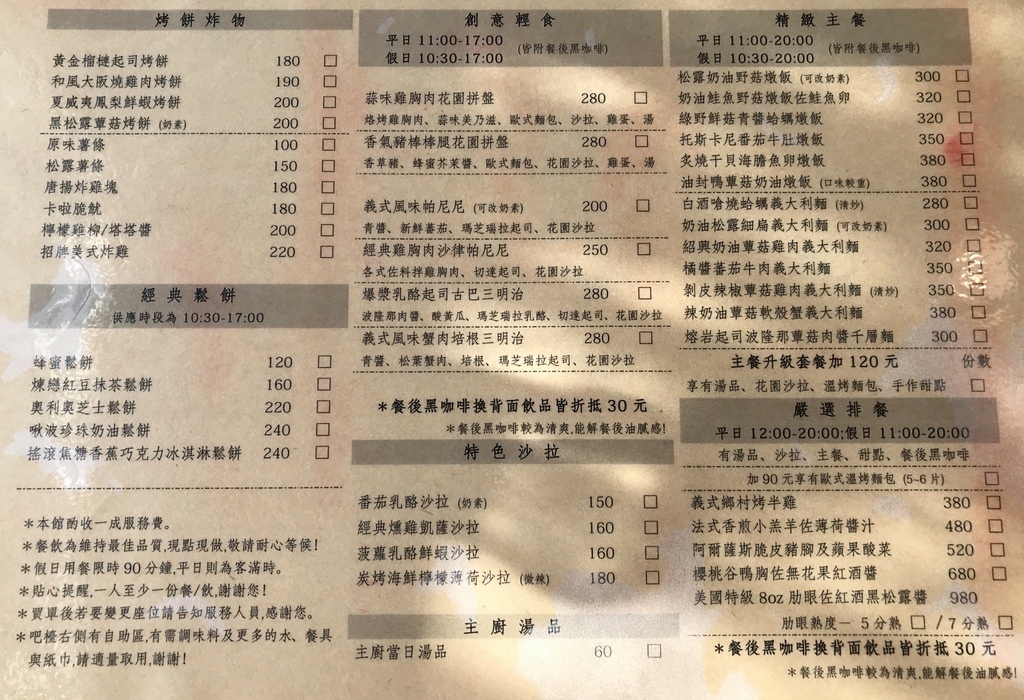 烤餅炸物
黃金榴槤起司烤餅 180 □
和風大阪燒雞肉烤餅 190 □
夏威夷鳳梨鮮蝦烤餅 200 □
黑松露蕈菇烤餅 (奶素) 200 □
原味薯條 100 □
松露薯條 150 □
唐揚炸雞塊 180 □
卡啦脆魷 180 □
檸檬雞柳/塔塔醬 200 □
招牌美式炸雞 220 □
經典鬆餅
供應時段為 10:30-17:00
蜂蜜鬆餅 120 □
煉戀紅豆抹茶鬆餅 160 □
奧利奧芝士鬆餅 220 □
啾波珍珠奶油鬆餅 240 □
搖滾焦糖香蕉巧克力冰淇淋鬆餅 240 □
＊本館酌收一成服務費。
＊餐飲為維持最佳品質,現點現做,敬請耐心等候!
＊假日用餐限時90分鐘,平日則為客滿時。
＊貼心提醒,一人至少一份餐/飲,謝謝您!
＊買單後若要變更座位請告知服務人員,感謝您。
＊吧檯右側有自助區,有需調味料及更多的水、餐具
與紙巾,請適量取用,謝謝!
創意輕食
平日 11:00-17:00
假日 10:30-17:00
(皆附餐後黑咖啡)
蒜味雞胸肉花園拼盤 280 □
烙烤雞胸肉、蒜味美乃滋、歐式麵包、沙拉、雞蛋、湯
香氣豬棒棒腿花園拼盤 280 □
香草豬、蜂蜜芥茉醬、歐式麵包、花園沙拉、雞蛋、湯
義式風味帕尼尼 (可改奶素) 200 □
青醬、新鮮蕃茄、瑪芝瑞拉起司、花園沙拉
經典雞胸肉沙律帕尼尼 250 □
各式佐料拌雞胸肉、切達起司、花園沙拉
爆漿乳酪起司古巴三明治 280 □
波隆那肉醬、酸黃瓜、瑪芝瑞拉乳酪、切達起司、花園沙拉
義式風味蟹肉培根三明治 280 □
青醬、松葉蟹肉、培根、瑪芝瑞拉起司、花園沙拉
＊餐後黑咖啡換背面飲品皆折抵30元
＊餐後黑咖啡較為清爽,能解餐後油膩感!
特色沙拉
番茄乳酪沙拉 (奶素) 150 □
經典燻雞凱薩沙拉 160 □
菠蘿乳酪鮮蝦沙拉 160 □
炭烤海鮮檸檬薄荷沙拉 (微辣) 180 □
主廚湯品
主廚當日湯品 60 □
精緻主餐
平日 11:00-20:00
假日 10:30-20:00
(皆附餐後黑咖啡)
松露奶油野菇燉飯 (可改奶素) 300 □
奶油鮭魚野菇燉飯佐鮭魚卵 320 □
綠野鮮菇青醬蛤蠣燉飯 320 □
托斯卡尼番茄牛肚燉飯 350 □
炙燒干貝海膽魚卵燉飯 380 □
油封鴨蕈菇奶油燉飯 (口味較重) 380 □
白酒嗆燒蛤蠣義大利麵 (清炒) 280 □
奶油松露細扁義大利麵 (可改奶素) 300 □
紹興奶油蕈菇雞肉義大利麵 320 □
橘醬蕃茄牛肉義大利麵 350 □
剝皮辣椒蕈菇雞肉義大利麵 (清炒) 350 □
辣奶油蕈菇軟殼蟹義大利麵 380 □
熔岩起司波隆那蕈菇肉醬千層麵 300 □
主餐升級套餐加 120 元 份數
享有湯品、花園沙拉、溫烤麵包、手作甜點 □
嚴選排餐
平日 12:00-20:00;假日 11:00-20:00
有湯品、沙拉、主餐、甜點、餐後黑咖啡
加 90 元享有歐式溫烤麵包 (5~6 片) □
義式鄉村烤半雞 380 □
法式香煎小羔羊佐薄荷醬汁 480 □
阿爾薩斯脆皮豬腳及蘋果酸菜 520 □
櫻桃谷鴨胸佐無花果紅酒醬 680 □
美國特級 8oz 肋眼佐紅酒黑松露醬 980
肋眼熟度－ 5 分熟 □ / 7 分熟 □
＊餐後黑咖啡換背面飲品皆折抵 30 元
＊餐後黑咖啡較為清爽,能解餐後油膩感!